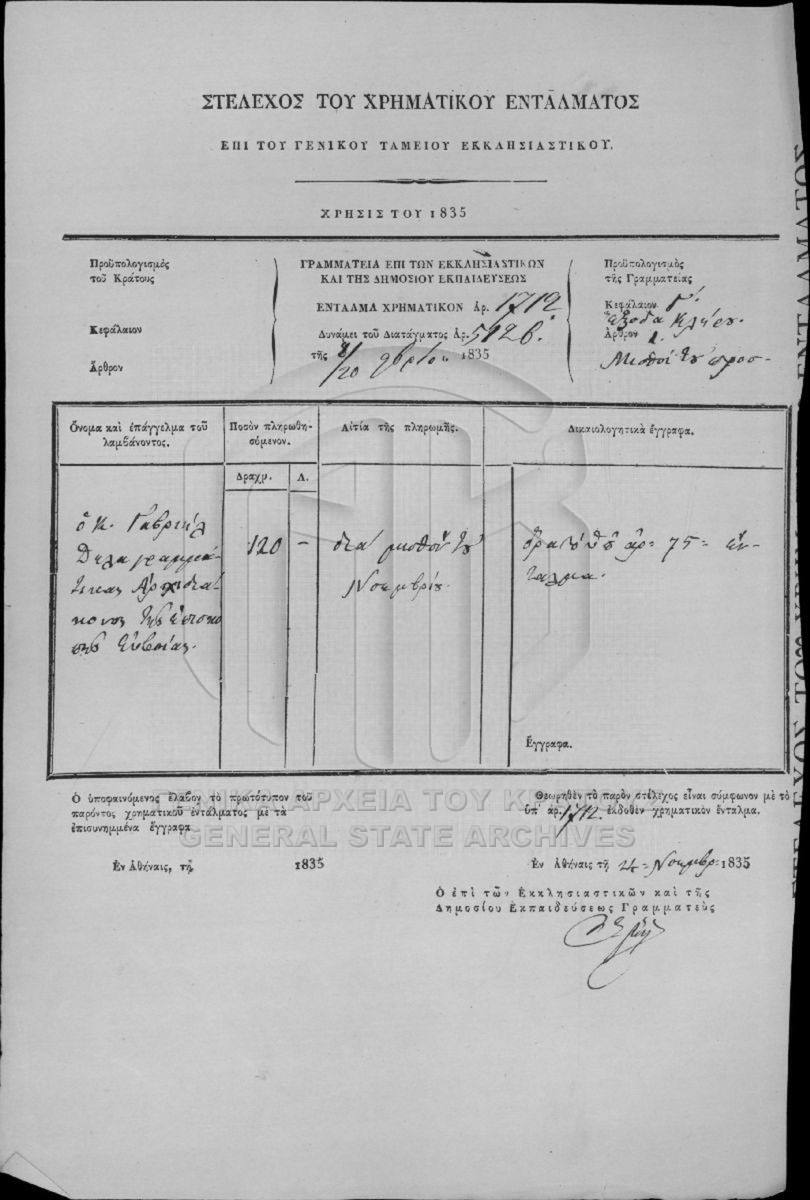 ΣΤΕΛΕΧΟΣ ΤΟΥ ΧΡΗΜΑΤΙΚΟΥ ΕΝΤΑΛΜΑΤΟΣ
ΕΠΙ ΤΟΥ ΓΕΝΙΚΟΥ ΤΑΜΕΙΟΥ ΕΚΚΛΗΣΙΑΣΤΙΚΟΥ.
ΧΡΗΣΙΣ ΤΟΥ 1835
Προϋπολογισμὸς
τοῦ Κράτους
Κεφάλαιον
Ἄρθρον
ΓΡΑΜΜΑΤΕΙΑ ΕΠΙ ΤΩΝ ΕΚΚΛΗΣΙΑΣΤΙΚΩΝ
ΚΑΙ ΤΗΣ ΔΗΜΟΣΙΟΥ ΕΚΠΑΙΔΕΥΣΕΩΣ
ΕΝΤΑΛΜΑ ΧΡΗΜΑΤΙΚΟΝ Ἀρ. 1712
Δυνάμει τοῦ Διατάγματος Ἀρ. 5126.
τῆς 8/20 9βρίου 1835
Προϋπολογισμὸς
τῆς Γραμματείας
Κεφάλαιον Γ.
Ἔξοδα Κλήρου.
Ἄρθρον 1.
Μισθοὶ
Ὄνομα καὶ ἐπάγγελμα τοῦ
λαμβάνοντος.
Ποσὸν πληρωθη-
σόμενον.
Δραχμ. Λ.
Αἰτία τῆς πληρωμῆς.
Δικαιολογητικὰ ἔγγραφα.
ὁ Κ. Γαβριὴλ
Δελαγραμμά-
τικας Ἀρχιδιά-
κονος τῆς ἐπισκο
πῆς Εὐβοίας.
120 –
διὰ μισθὸν τοῦ
Νοεμβρίου.
ὅρα τὸ ὑπ' ἀρ. 75 ἔν-
ταλμα.
Ἔγγραφα.
Ὁ ὑποφαινόμενος ἔλαβον τὸ πρωτότυπον τοῦ
παρόντος χρηματικοῦ ἐντάλματος μὲ τὰ
ἐπισυνημμένα ἔγγραφα
Ἐν Ἀθήναις, τῇ 1835
Θεωρηθὲν τὸ παρὸν στέλεχος εἶναι σύμφωνον μὲ τὸ
ὑπ' ἀρ. 1712. ἐκδοθὲν χρηματικὸν ἔνταλμα.
Ἐν Ἀθήναις τῇ Νοεμβρ. 1835
Ὁ ἐπὶ τῶν Ἐκκλησιαστικῶν καὶ τῆς
Δημοσίου Ἐκπαιδεύσεως Γραμματεὺς
ΓΕΝΙΚΑ ΑΡΧΕΙΑ ΤΟΥ ΚΡΑΤΟΥΣ
GENERAL STATE ARCHIVES